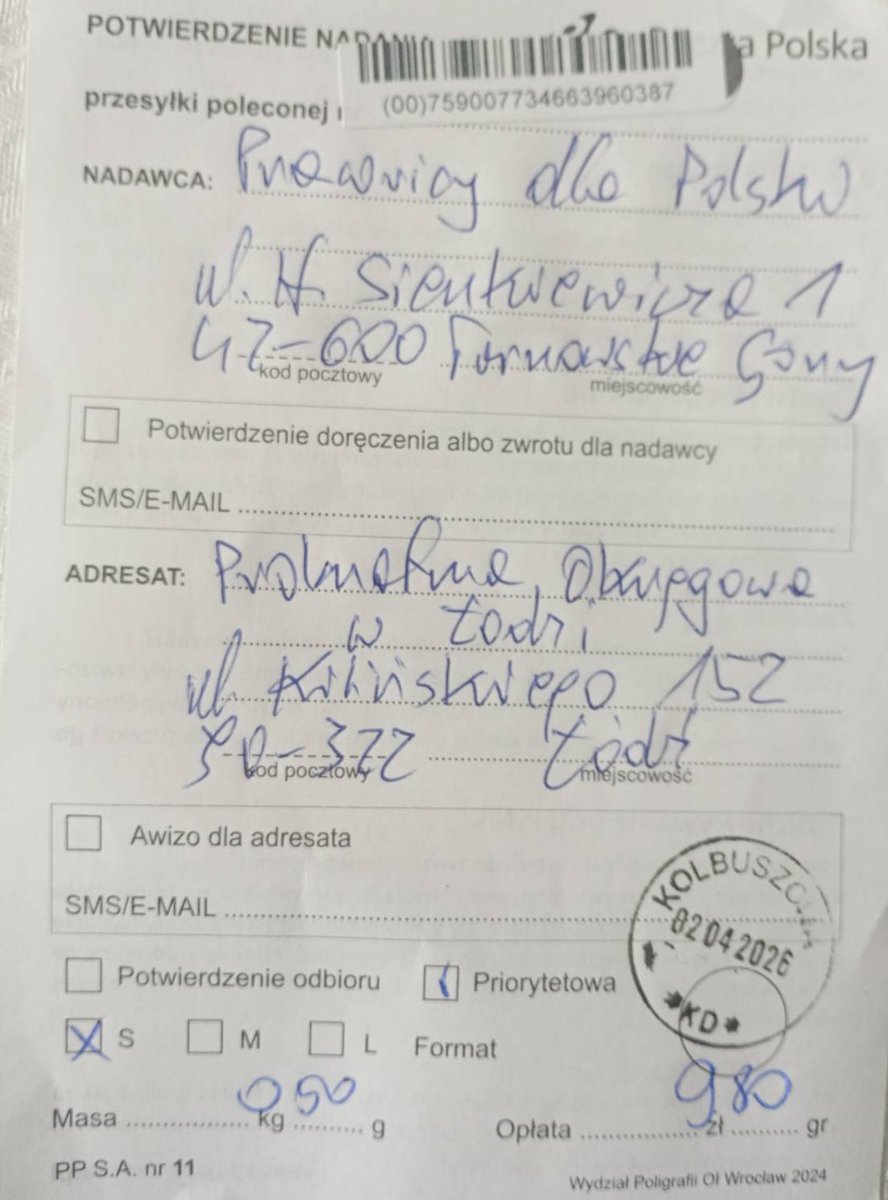 POTWIERDZENIE NADANIA
a Polska
przesyłki poleconej
(00)759007734663960387
NADAWCA: Prawnicy dla Polski
ul. H. Sienkiewicza 1
42-600 Tarnowskie Góry
kod pocztowy miejscowość
Potwierdzenie doręczenia albo zwrotu dla nadawcy
SMS/E-MAIL
ADRESAT: Prokuratura Okręgowa
w Łodzi
ul. Kilińskiego 152
90-322 Łódź
kod pocztowy miejscowość
Awizo dla adresata
SMS/E-MAIL
KOLBUSZOWA
02 04 2026
*KD*
Potwierdzenie odbioru Priorytetowa
X S M L Format
Masa 0 kg 50 g Opłata 9 zł 80 gr
PP S.A. nr 11
Wydział Poligrafii OI Wrocław 2024